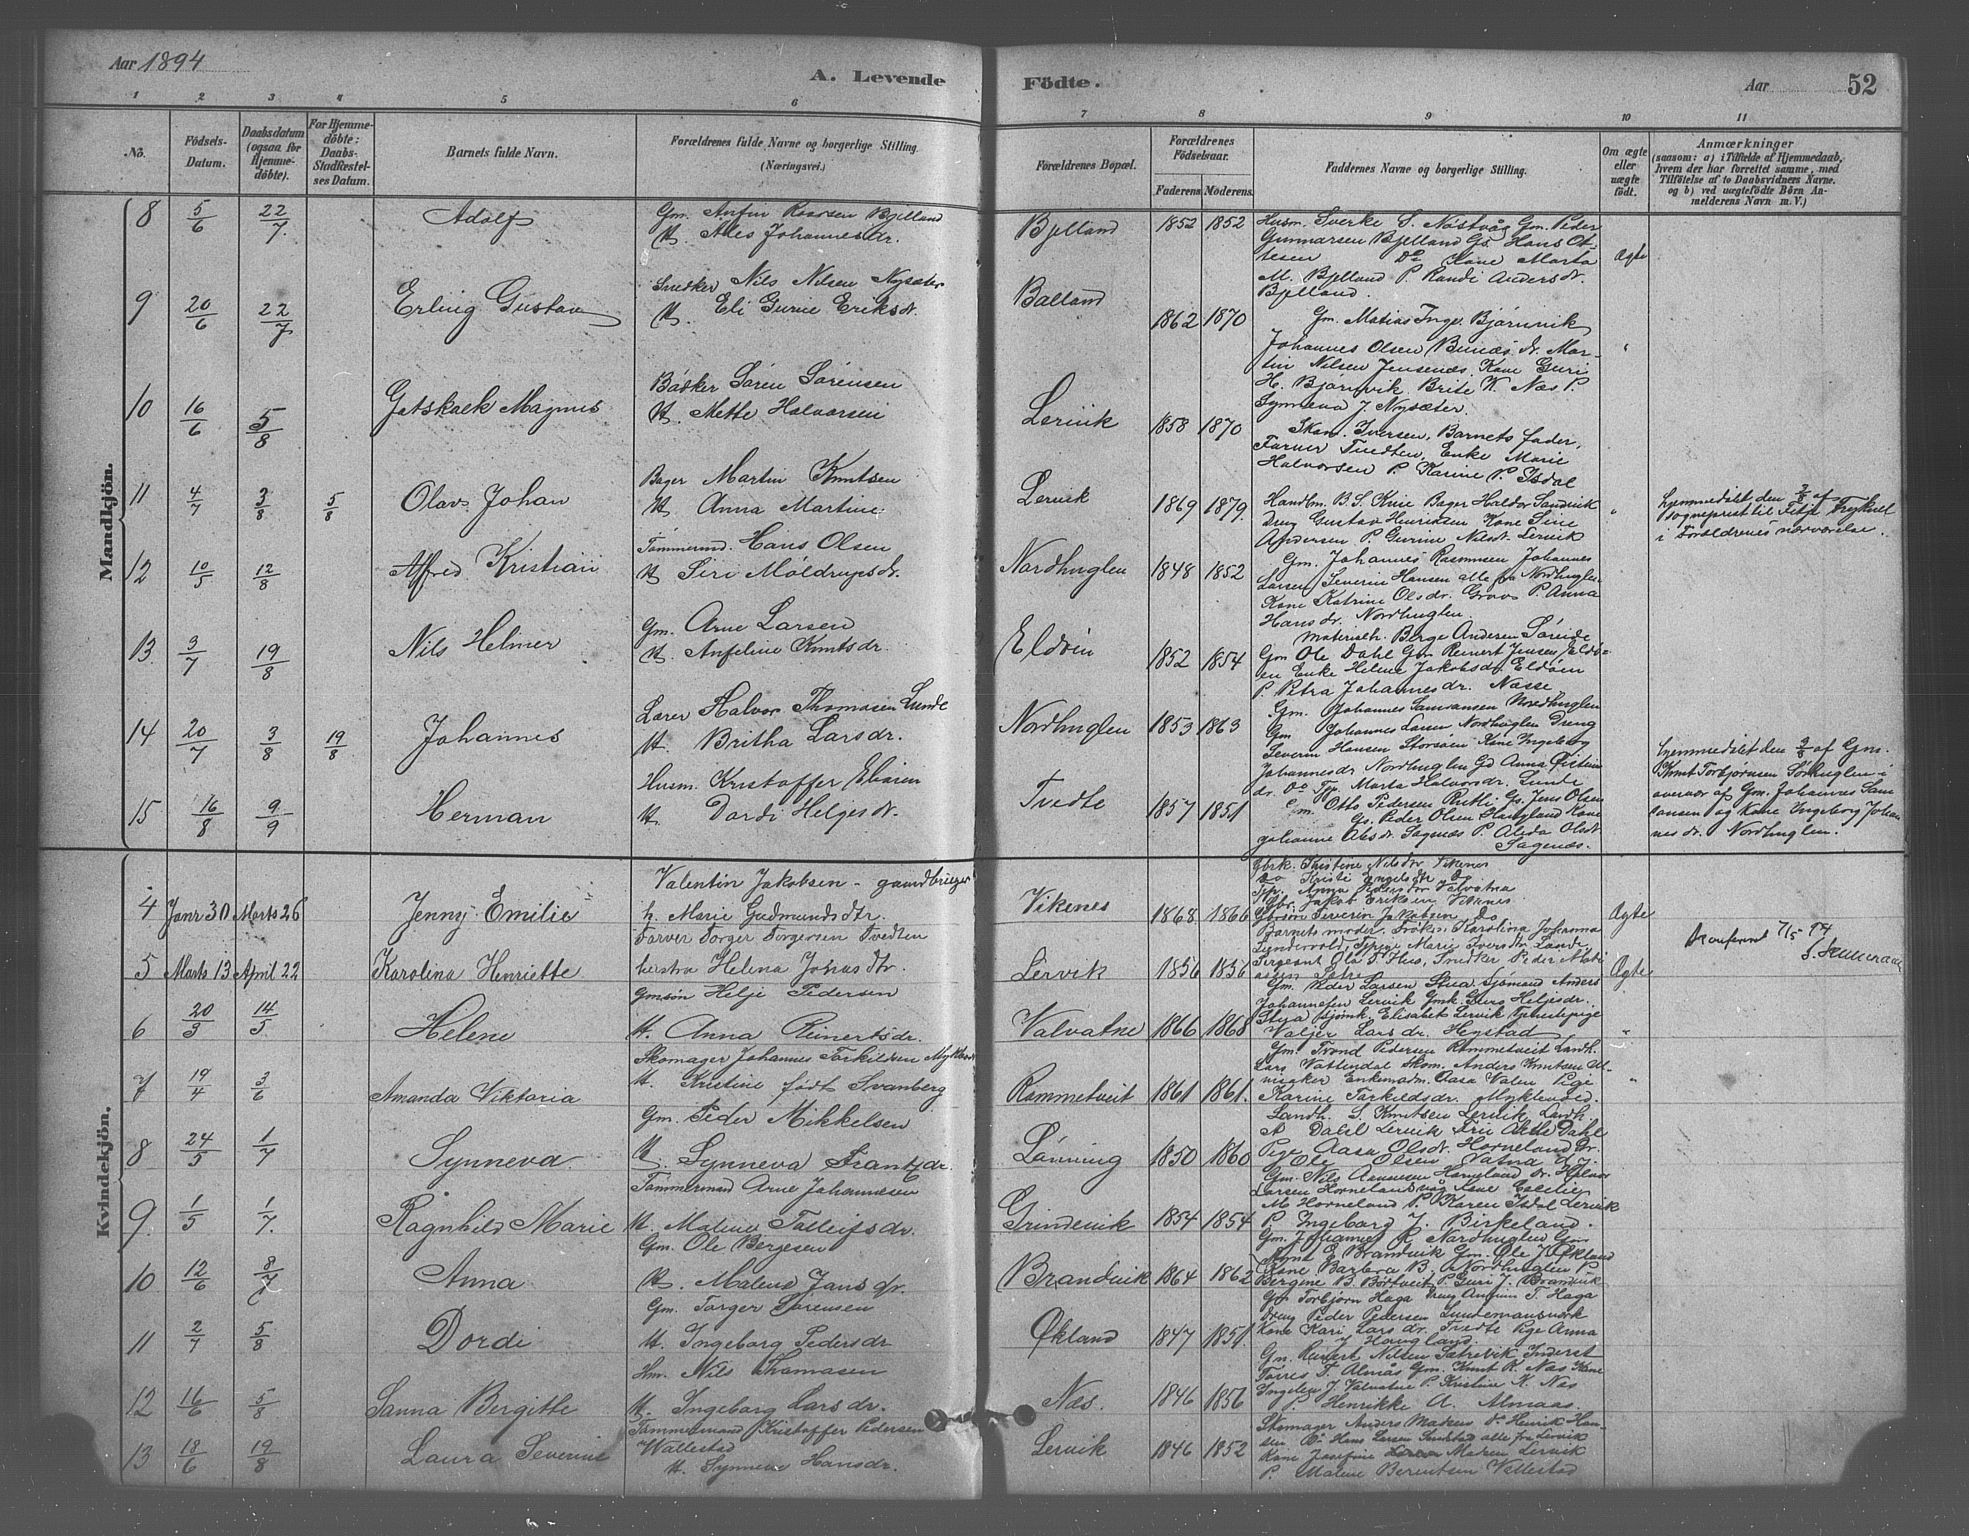 Aar 1894
A. Levende
Födte.
Aar
52
1 2 3 4 5 6 7 8 9 10 11
No.
Födsels-Datum.
Daabsdatum (ogsaa for Hjemme-döbte).
For Hjemme-döbte: Daabs-Stadfæstelses Datum.
Barnets fulde Navn.
Forældrenes fulde Navne og borgerlige Stilling. (Næringsvei.)
Forældrenes Bopæl.
Forældrenes Födselsaar.
Faderens. Moderens.
Faddernes Navne og borgerlige Stilling.
Om ægte eller uægte födt.
Anmærkninger
(saasom: a) i Tilfælde af Hjemmedaab, hvem der har forrettet samme, med Tilföielse af to Daabsvidners Navne, og b) ved uægtefödte Börn Anmelderens Navn m. V.)
Mandkjön.
8 5/6 22/7. Adolf
Gm. Anfin Roarsen Bjelland
H. Ales Johannesdr.
Bjelland 1852 1852
Husm. Sverke S. Nøstvåg Gm. Peder
Gunnarsen Bjelland Gs. Hans Ot-
tesen Do Kone Marta
M. Bjelland P. Randi Andersdr.
Bjelland.
Ægte
9 20/6 22/7 Erling Gustav
Snedker Nils Nilsen Nysæter
H. Eli Gurine Eriksdr.
Balland 1862 1870
Gm. Matias Ing. Bjørnvik
Johannes Olsen
Nilsen Jensenæs. Kone Guri
H. Bjørnvik Brite K. Næs P.
Synneva J. Nysæter.
10 16/6 5/8 Gotskalk Magnus
Bødker Søren Sørensen
H. Mette Halvorsen
Lervik 1858 1870
Skom. Iversen, Barnets fader,
Farver Tvedten, Enke Marie
Halvorsen P. Karine P. Isdal
11 4/7 3/8 5/8 Olav Johan
Bager Martin Knutsen
H. Anna Martine
Lervik 1869 1879.
Handlm. B. S. Knie Bager Haldor Sandvik
Dreng Gustav Henriksen Kone Sine
Andersen P. Gurine Nilsdr. Lervik
hjemmedøbt den 3/8 af
sogneprest til Fitje
i Forældrenes nærværelse.
12 10/5 12/8 Alfred Kristian
Tømmermd. Hans Olsen
H. Siri Moldrupsdr.
Nordhuglen 1848 1852
Gm. Johannes Rasmussen Johannes
Larsen Severin Hansen alle fra Nordhuglen
Kone Katrine Olsdr. P. Anna
Hansdr. Nordhuglen
13 3/7 19/8 Nils Helmer
Gm. Arne Larsen
H. Anfeline Knutsdr.
Eldøin 1852 1854
Materialh. Berge Andersen
Gm Ole Dahl Gm Reinert Jensen Eldø-
en Enke Helene Jakobsdr Eldøen
P. Petra Johannesdr. Næsse
14 20/7 3/8 19/8 Johannes
Lærer Halvor Thomasen Lunde
H. Britha Larsdr.
Nordhuglen 1853 1863
Gm. Johannes Samsonsen Nordhuglen
Gm Johannes Larsen Nordhuglen Dreng
Severin Hansen Storsøen Kone Ingeborg
Johannesdr Nordhuglen
Marta Halvorsdr. Lunde
hjemmedøbt den 3/8 af Gm.
Knut Torbjørnsen Sørhuglen i
overvær af Gm. Johannes Sam-
sonsen og Kone Ingeborg Johan-
nesdr. Nordhuglen.
15 16/8 9/9 Herman
Husm. Kristoffer
H. Dordi Helgesdr.
Tvedte 1857 1851
Gm. Otto Pedersen Gs. Jens Olsen
Gs. Peder Olsen Haugland Kone
Johanne Sagenæs P. Alida Olsdr
Sagenæs.
Kvindekjön.
4 Janr 30 Marts 26 Jenny Emilie
Valentin Jakobsen - gaardbruger
h. Marie Gudmundsdtr.
Vikenes 1868 1866
Gbrk. Kristine Nilsdtr Vikenes
Do Kristi Engelsdtr Do
Jakob Eriksen Vikenes
Gbrsøn Severin Jakobsen Do
Ægte
5 Marts 13 April 22 Karolina Henriette
Farver Torger Torgersen Tvedten
Helena Johasdtr.
Lervik 1856 1856
Barnets moder. Frøkn. Karolina Johanna
Marie Iversdtr Lunde,
Sergeant Ola Snedker Peder
Ægte
Konfirmert 7/5 94
6 20/3 14/5 Helene
Gmsøn Helje Pedersen
H. Anna Reinertsdr.
Valvatne 1866 1868
Gm. Peder Larsen Stua Sjømand Anders
Johannesen Lervik Gmk. Guro Heljesdr.
Stua Sjømk. Elisabet Lervik
Valjer Larsdr. Heystad
7 19/4 3/6 Amanda Viktoria
Skomager Johannes Torkildsen
H. Kristine født Svanberg
Rommetveit 1861 1861.
Gm. Trond Pedersen Rommetveit Landh.
Lars Vattendal Skom. Anders Knutsen
Enkemadm. Aasa Valen Pige
Karine Torkildsdr.
8 24/5 1/7 Synneva.
Gm. Peder Mikkelsen
H. Synneva Frantzdr.
Lønning 1850 1860
Landh. S. Knutsen Lervik Landh.
A Dahl Lervik Dahl
Pige Aasa Olsdr. Horneland Dr.
Ole Olsen Vatna
9. 1/5 1/7. Ragnhild Marie
Tømmermand Arne Johannesen
H. Malene Tolleifsdr.
Grindevik 1854 1854
Gm. Nils
Larsen Horneland Kone Cecilie
M Horneland P. Karen Isdal Lervik
P. Ingeborg J. Birkeland.
10 12/6 8/7 Anna
Gm. Ole Bergesen
H. Malene Jansdr.
Brandvik 1864 1862
Gm. Johannes R. Nordhuglen Gm
Knut E Brandvik Gm. Ole J Økland
Kone Barbra B. Nordhuglen P.
Bergine B. Børtveit P. Guri J. Brandvik
11 2/7 5/8 Dordi
Gm. Torger Sørensen
H. Ingeborg Pedersdr
Økland 1847 1851.
Gm Torbjørn Haga Dreng T. Haga
Dreng Peder Pedersen
Kone Kari Larsdr. Tvedte Pige Anna
J Haugland.
12 16/6 5/8 Sanna Bergitte
Hm. Nils Thomasen
H. Ingeborg Larsdr.
Næs. 1846 1856
Gm. Reinert Nilsen Sætrevik
Torres T. Almås Gm. Knut R. Næs Kone
Ingelen J. Valvatne P. Kristine K. Næs
P. Henrikke A. Almaas.
13 18/6 19/8 Laura Severine
Tømmermand Kristoffer Pedersen
Wallestad
H. Synneve Hansdr.
Lervik 1846 1852
Skomager Anders Madsen Do Henrik Han-
sen Do Hans Larsen alle fra Lervik
Kone Josefine Madsen Lervik
P. Malene Berentsen Vallestad